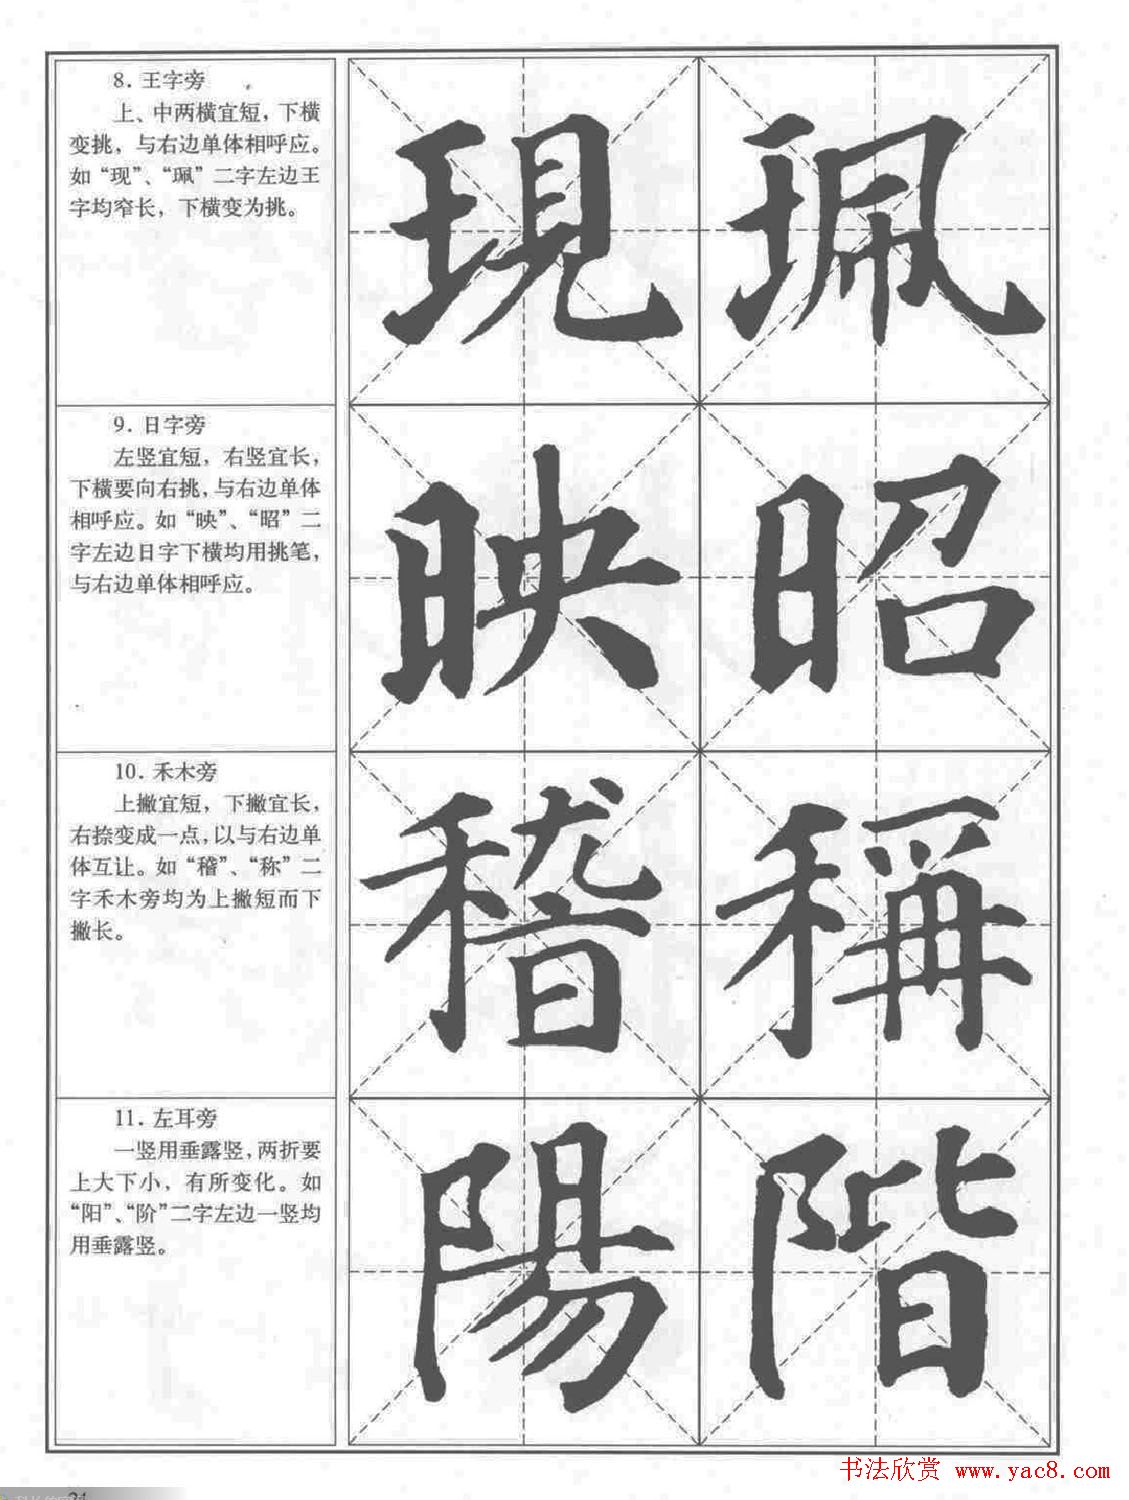 8. 王字旁
上、中两横宜短，下横
变挑，与右边单体相呼应。
如“现”、“珮”二字左边王
字均窄长，下横变为挑。
現 珮
9. 日字旁
左竖宜短，右竖宜长，
下横要向右挑，与右边单体
相呼应。如“映”、“昭”二
字左边日字下横均用挑笔，
与右边单体相呼应。
映 昭
10. 禾木旁
上撇宜短，下撇宜长，
右捺变成一点，以与右边单
体互让。如“稽”、“称”二
字禾木旁均为上撇短而下
撇长。
稽 稱
11. 左耳旁
一竖用垂露竖，两折要
上大下小，有所变化。如
“阳”、“阶”二字左边一竖均
用垂露竖。
陽 階
书法欣赏 www.yac8.com